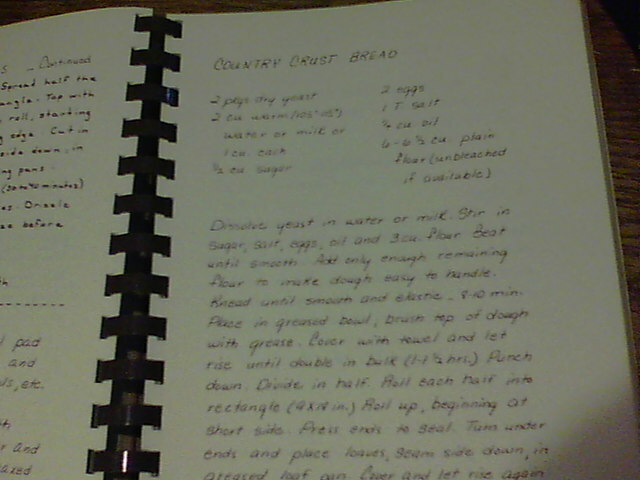 s - Continued
Spread half the
angle. Top with
roll, starting
g edge. Cut in
side down, in
g pans.
es. Drizzle
before
pad
and
ds, etc.
and
COUNTRY CRUST BREAD
2 pkgs dry yeast
2 cu. warm
water or milk or
1 cu. each
½ cu. sugar
2 eggs
1 T salt
cu. oil
6-6½ cu. plain
flour (unbleached
if available)
Dissolve yeast in water or milk. Stir in
sugar, salt, eggs, oil and 3 cu. flour. Beat
until smooth. Add only enough remaining
flour to make dough easy to handle.
Knead until smooth and elastic - 8-10 min.
Place in greased bowl, brush top of dough
with grease. Cover with towel and let
rise until double in bulk (1-1½ hrs.) Punch
down. Divide in half. Roll each half into
rectangle (in.) Roll up, beginning at
short side. Press ends to seal. Turn under
ends and place loaves, seam side down, in
greased loaf pan. Cover and let rise again